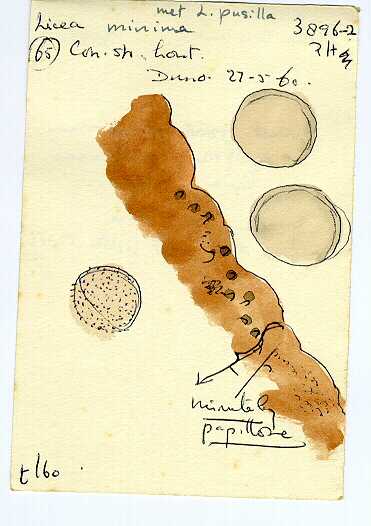 met L. pusilla
Licea minima 3896-2
(65) Con. st. hout.
Duno. 27-5-60.
minutely
papillose
t/60